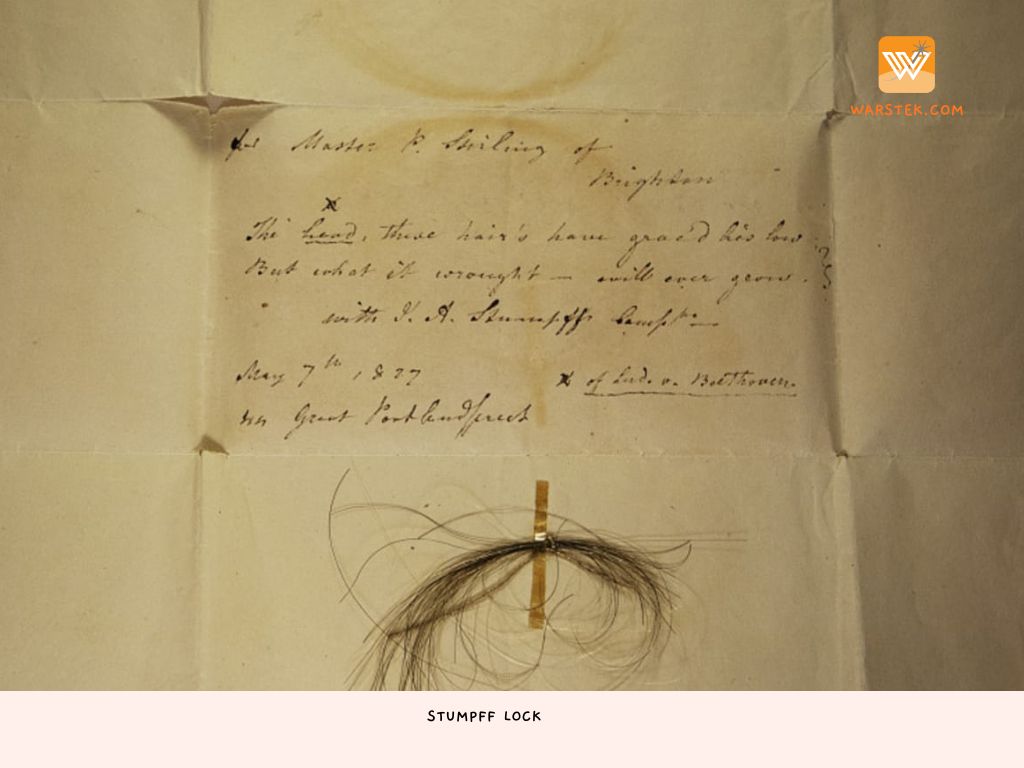 WARSTEK.COM
for Master P. Stirling of
Brighton
x
The head, these hair's have grac'd lies low
But what it wrought — will ever grow.
with J. A. Stumpff's Compts —
May 7th, 1827
x of Lud. v. Beethoven.
44 Great Portland Street
STUMPFF LOCK